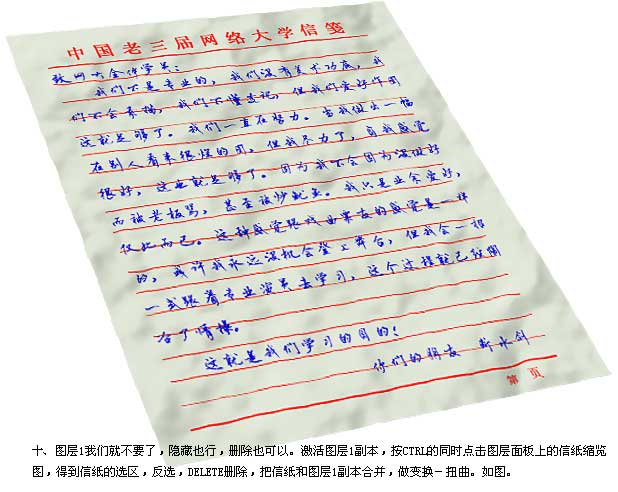 中国老三届网络大学信笺
致网大全体学员：
我们不是专业的，我们没有美术功底，我
们不会素描，我们不懂速记，但我们爱好作图
这就足够了。我们一直在努力。当我做出一幅
在别人看来很烂的图，但我尽力了，自我感觉
很好，这也就足够了。因为我不会因为没做好
而被老板骂，甚至被炒鱿鱼。我只是业余爱好，
仅此而已。这种感觉跟戏曲票友的感觉是一样
的，或许我永远没机会登上舞台，但我会一招
一式跟着专业演员去学习，这个过程就已经陶
冶了情操。
这就是我们学习的目的！
你们的朋友 靳冰剑
第 页
十、图层1我们就不要了，隐藏也行，删除也可以。激活图层1副本，按CTRL的同时点击图层面板上的信纸缩览
图，得到信纸的选区，反选，DELETE删除，把信纸和图层1副本合并，做变换－扭曲。如图。